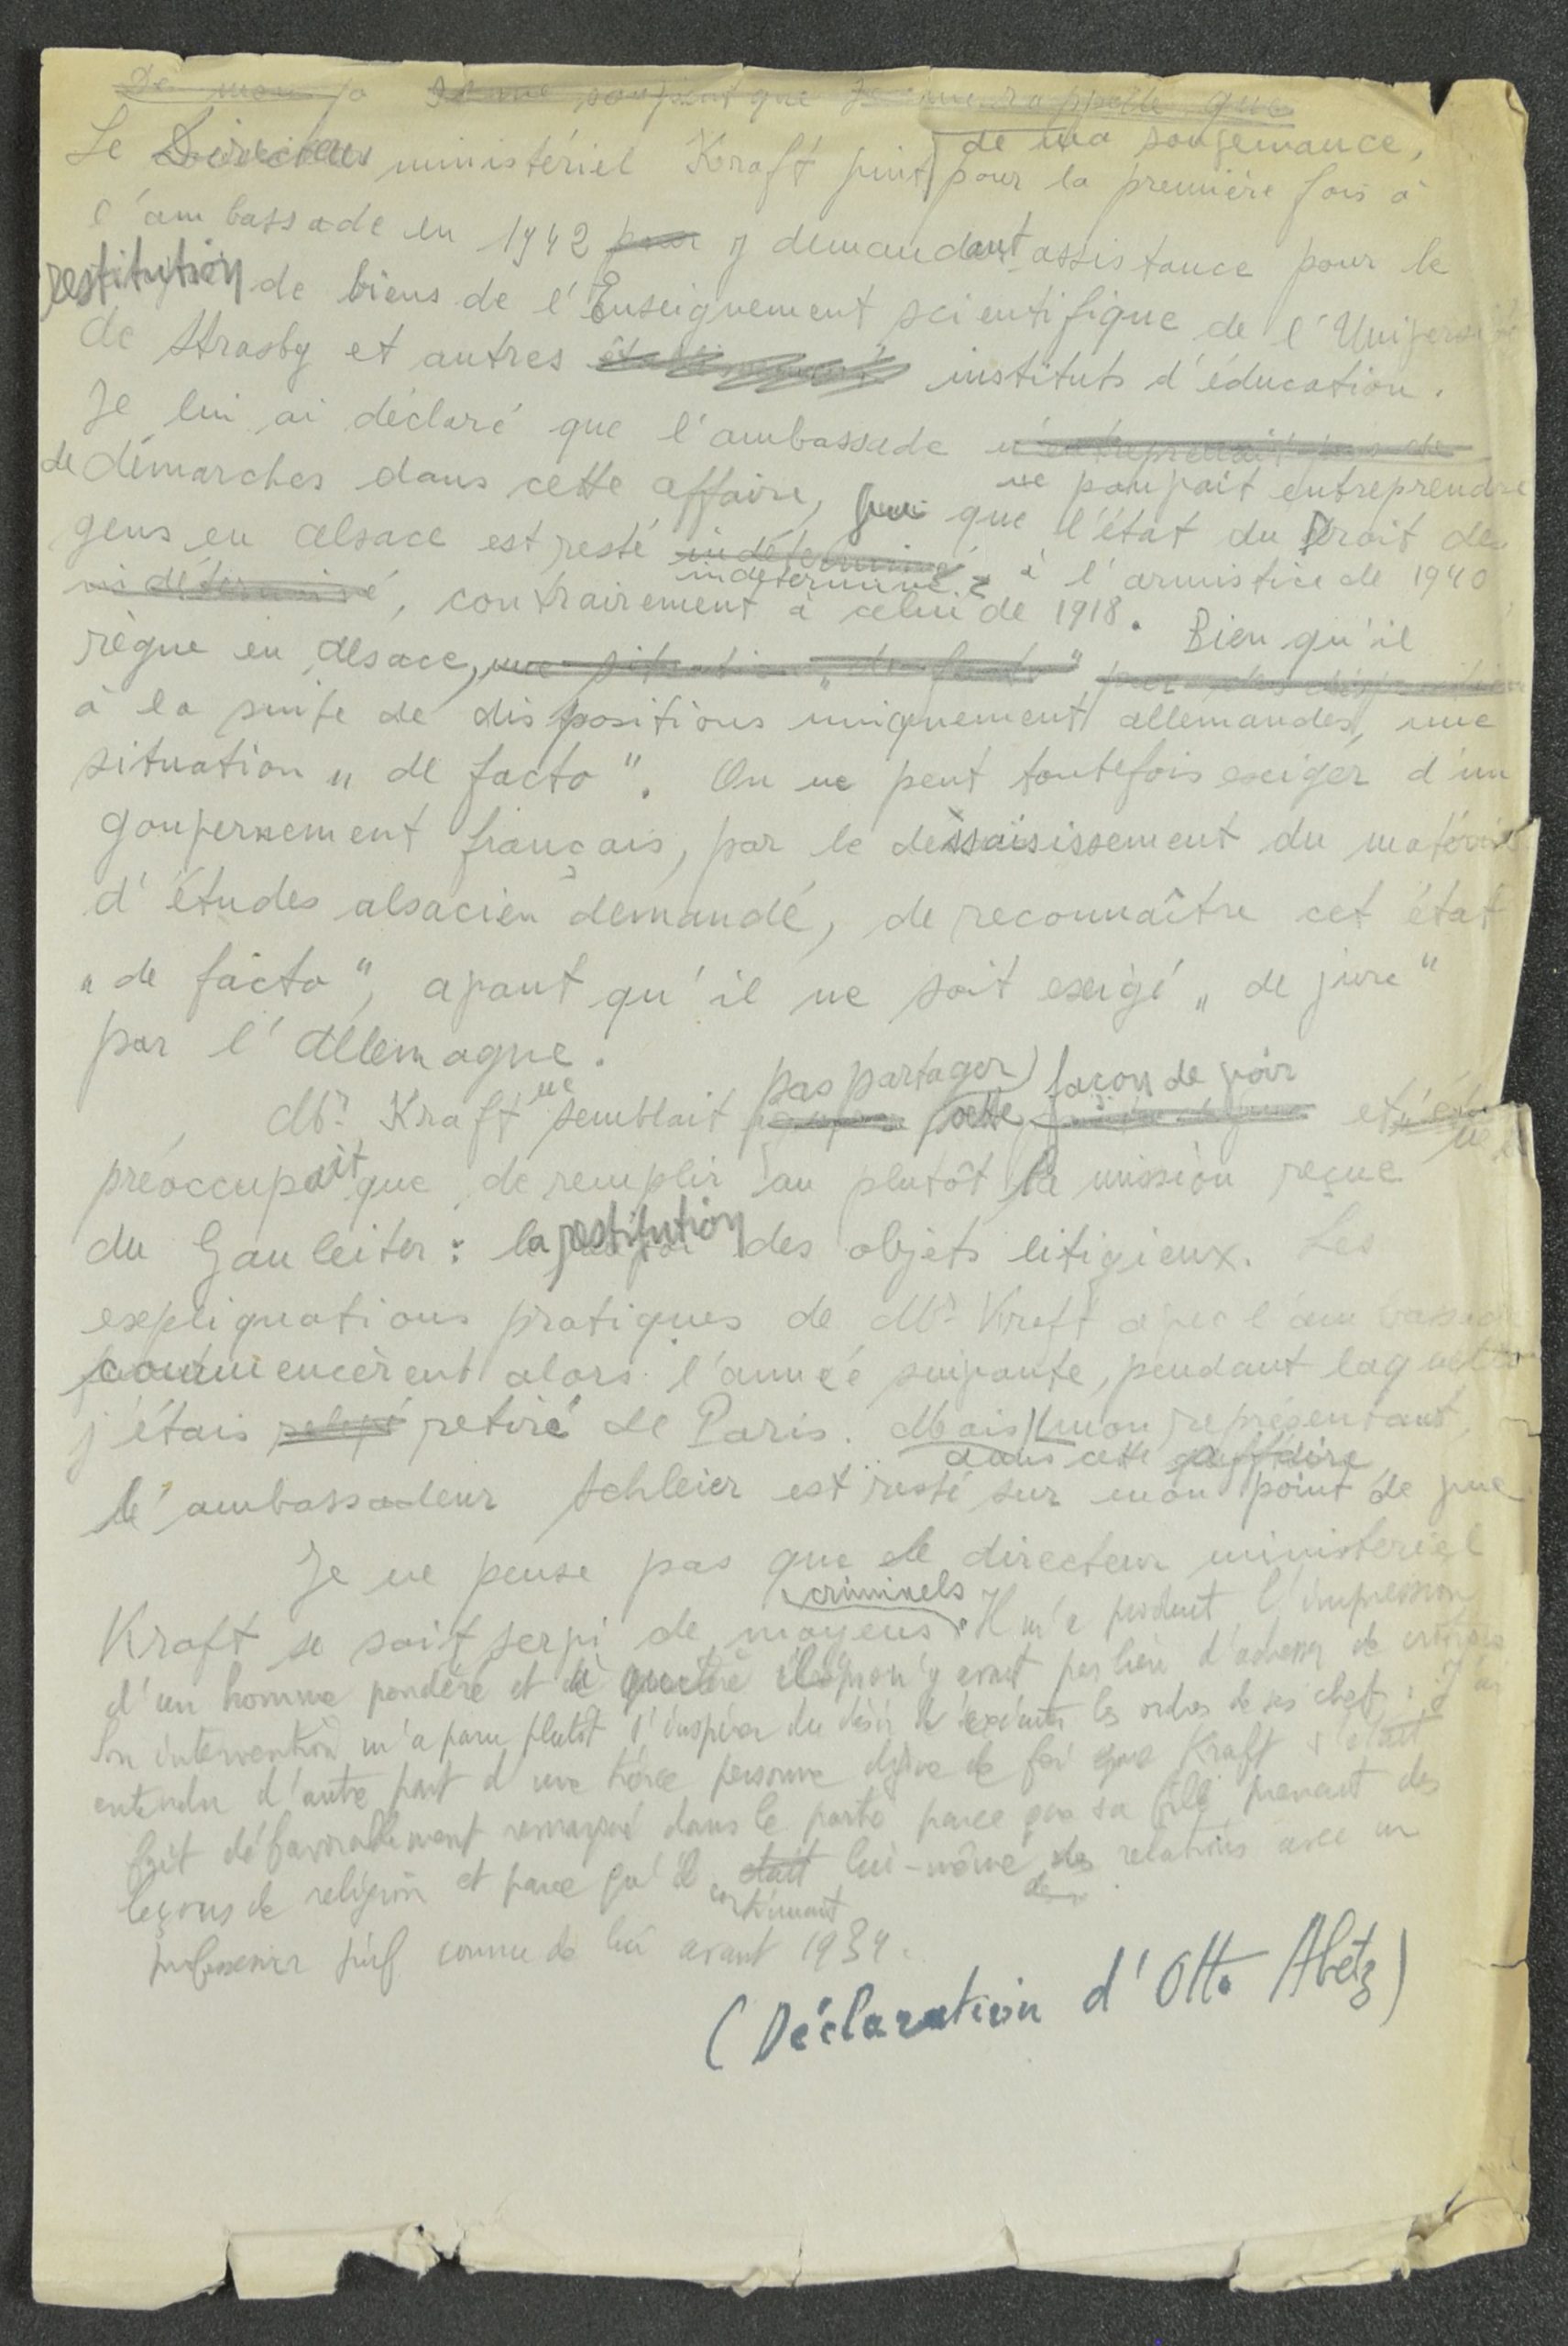 De mon Je me souvient que Je me rappelle que
de ma souvenance,
Le Directeur ministériel Kraft vint pour la première fois à
l'ambassade en 1942 pour y demandant assistance pour le
restitution de biens de l'Enseignement scientifique de l'Université
de Strasbg et autres instituts d'éducation.
Je lui ai déclaré que l'ambassade n'entreprenait pas de
ne pouvait entreprendre
de démarches dans cette affaire, que l'état du Droit des
gens en Alsace est resté indéterminé à l'armistice de 1940
indéterminé
indéterminé, contrairement à celui de 1918. Bien qu'il
règne en Alsace, une situation „de facto“, par des dispositions
à la suite de dispositions uniquement allemandes, une
situation „de facto“. On ne peut toutefois exiger d'un
gouvernement français, par le dessaisissement du matériel
d'études alsacien demandé, de reconnaître cet état
„de facto“, avant qu'il ne soit exigé „de jure“
par l'Allemagne.
pas partager façon de voir
Mr. Kraft ne semblait cette et ne
préoccupait que de remplir au plutôt la mission reçue
du Gauleiter: la restitution des objets litigieux. Les
expliquations pratiques de Mr. Kraft avec l'ambassade
commencèrent alors l'année suivante, pendant laquelle
j'étais relevé retiré de Paris. Mais mon représentant
dans cette affaire
l'ambassadeur Schleier est resté sur mon point de vue
Je ne pense pas que le directeur ministeriel
criminels
Kraft se soit servi de moyens. Il m'a produit l'impression
d'un homme pondéré et à qu'on n'y avait pas lieu d'adresser de critiques
Son intervention m'a paru plutôt s'inspirer du désir d'exécuter les ordres de ses chefs. J'ai
entendu d'autre part d'une tierce personne digne de foi que Kraft s'était
fait défavorablement remarqué dans le parti parce que sa fille prenait des
leçons de religion et parce qu'il était lui-même des relations avec un
continuait des
professeur juif connu de lui avant 1934.
(Déclaration d'Otto Abetz)